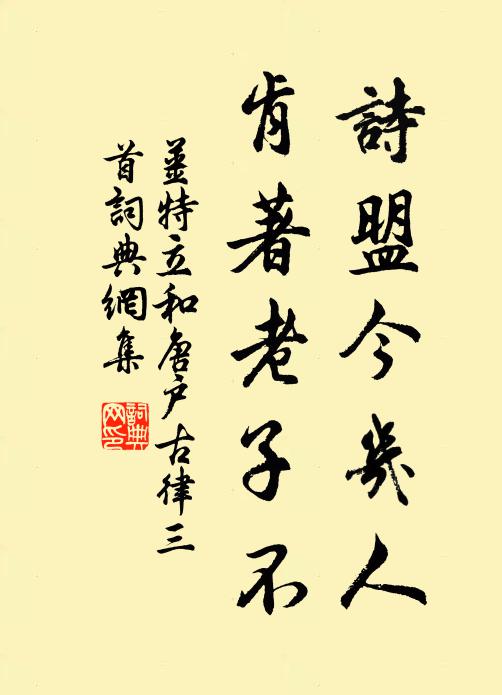 詩盟今幾人
肯著老子不
姜特立和唐戶古律三
首詞典網集
詞典
网印